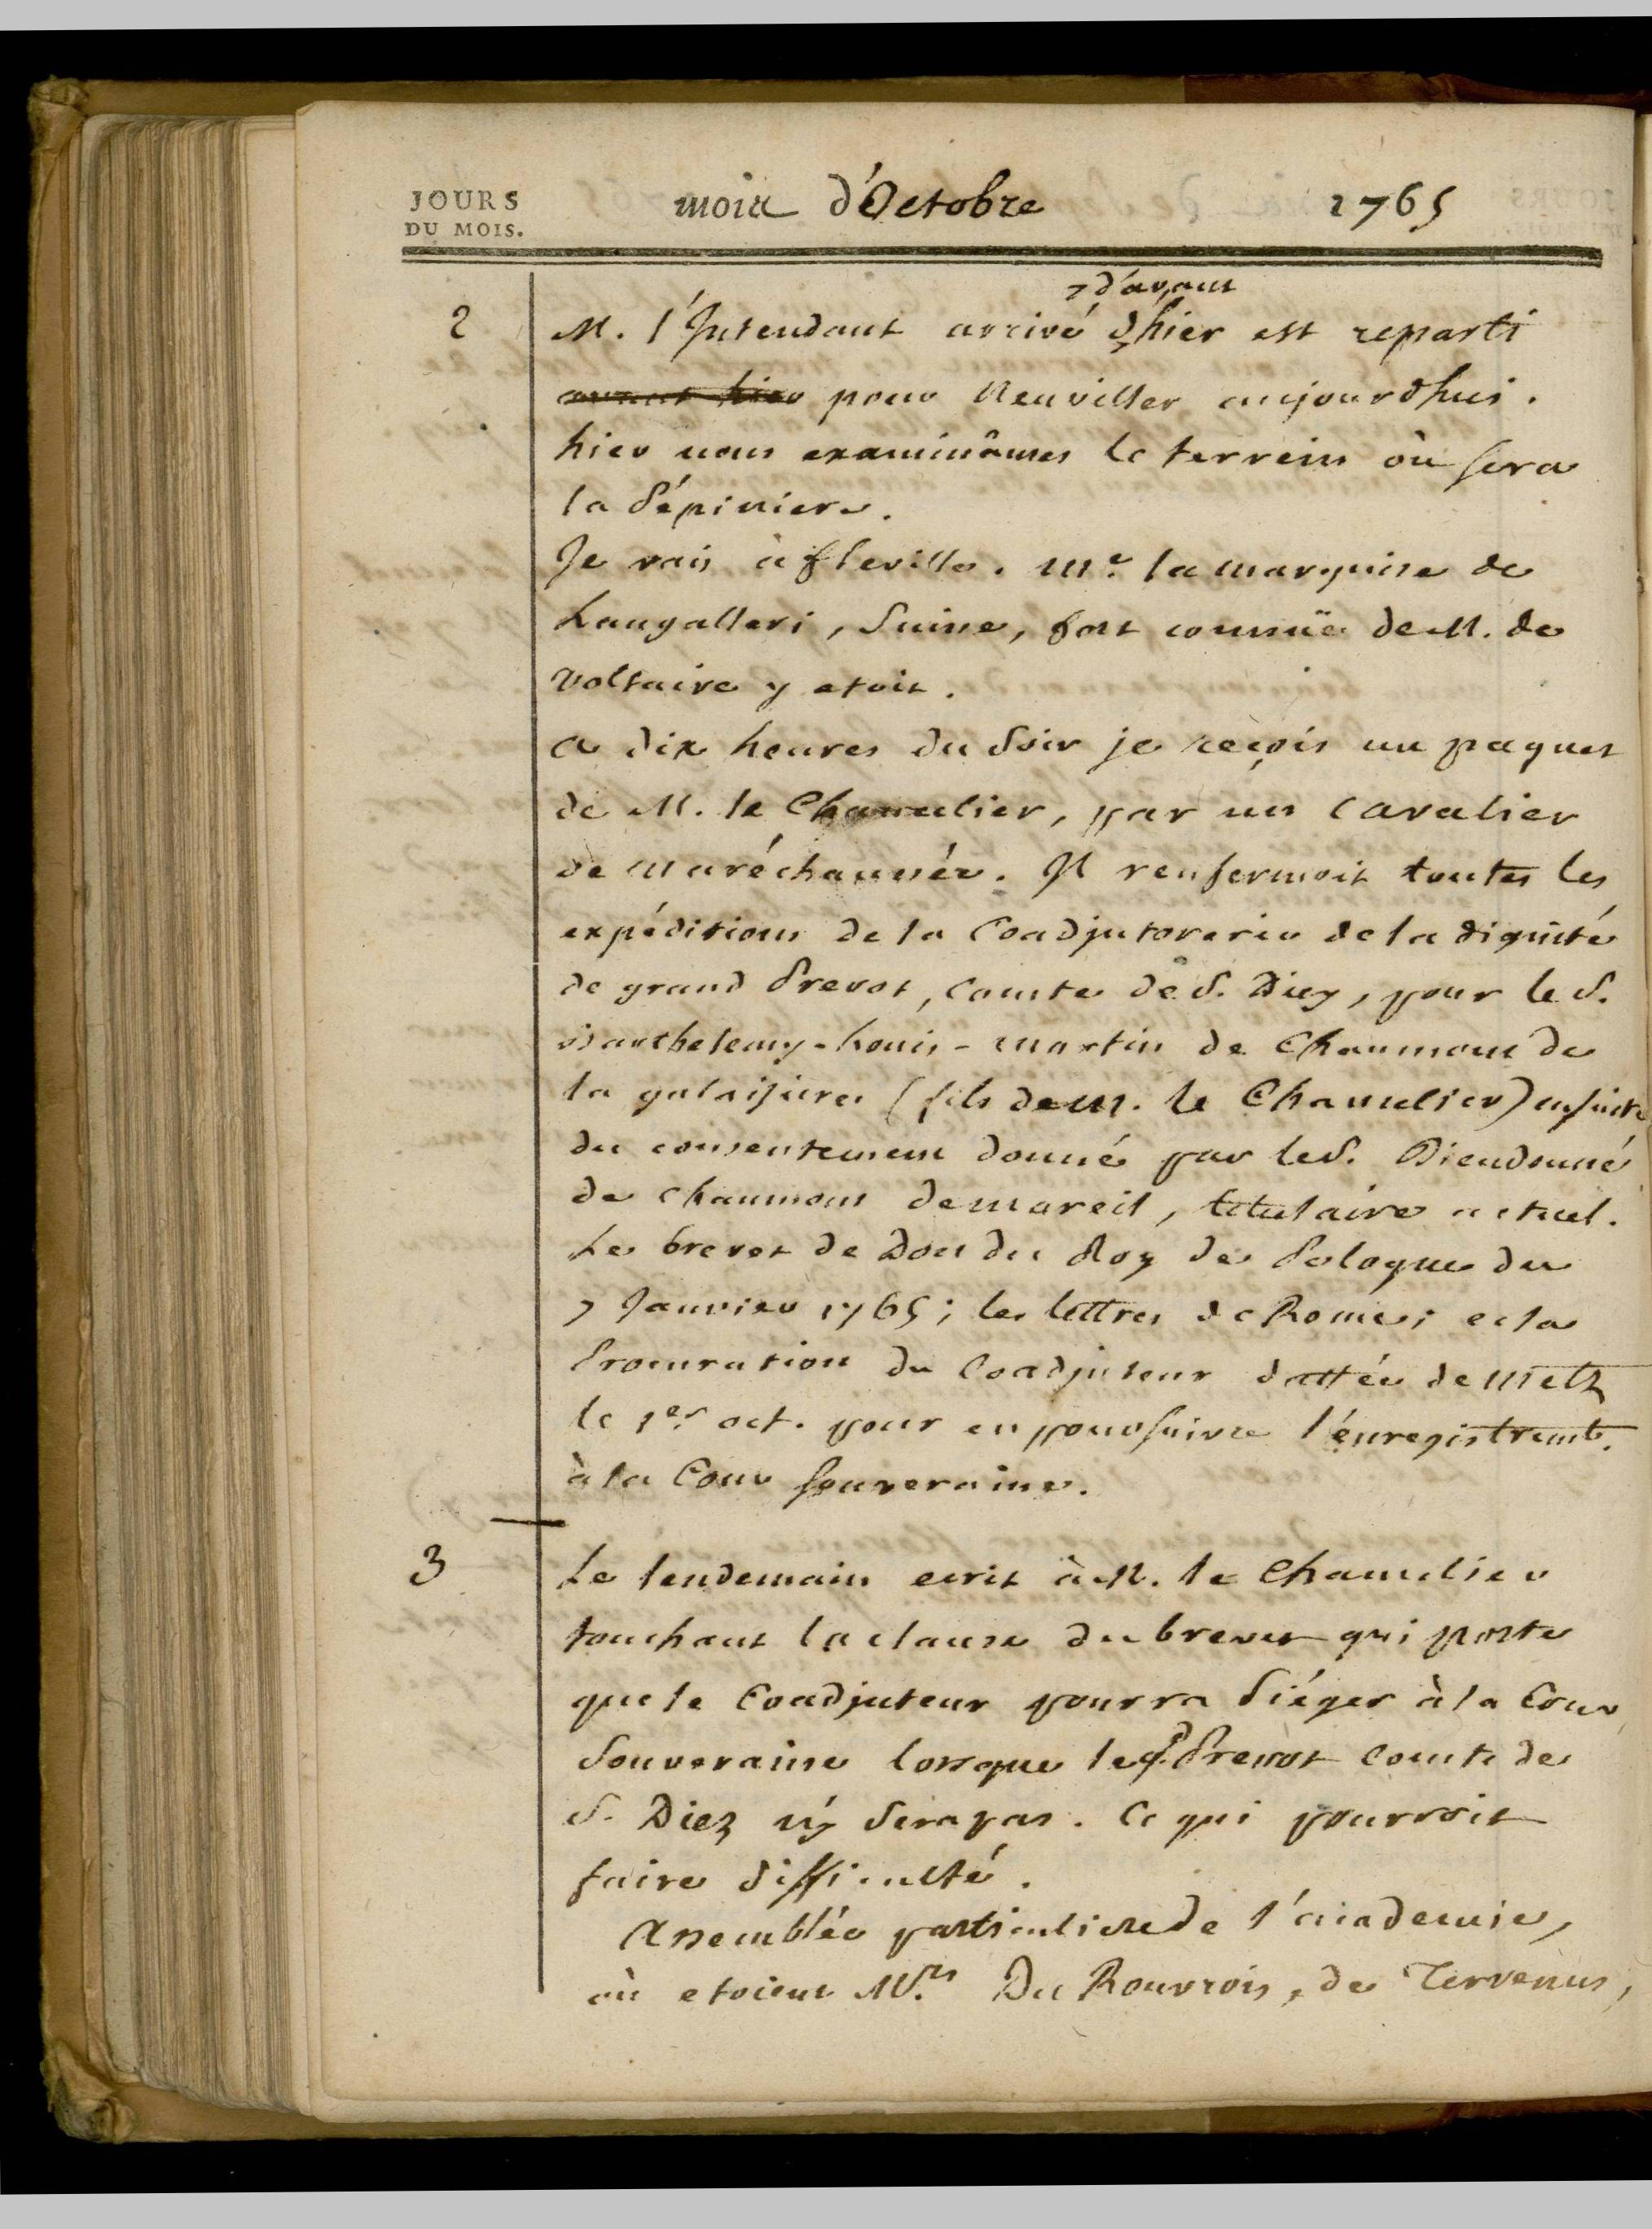 JOURS
DU MOIS.
mois d'Octobre 1765
d'avant
2 M. l'Intendant arrivé d'hier est reparti
avant hier pour Neuviller aujourd'hui.
hier nous examinâmes le terrein où sera
la Pépiniere.
Je vais à fleville. Me. la marquise de
Langalleri, Suisse, fort connuë de M. de
Voltaire y etoit.
a dix heures du Soir je reçois un paquet
de M. le Chancelier, par un cavalier
de maréchaussée. Il renfermoit toutes les
expéditions de la Coadjutorerie de la dignité
de grand Prevot, Comte de S. Diey, pour le S.
Barthelemy-Louis-martin de Chaumont de
la galaisiere (fils de M. le Chancelier) ensuite
du consentement donné par le S. Dieudonné
de Chaumont de mareil, titulaire actuel.
Le brevet de Don du Roy de Pologne du
7 Janvier 1765; les lettres de Rome; et la
Procuration du Coadjuteur dattée de Metz
le 1er oct. pour en poursuivre l'enregistremt.
à la Cour Souveraine.
3 Le lendemain ecrit à M. le Chancelier
touchant la clause du brevet qui porte
que le Coadjuteur pourra Siéger à la Cour
Souveraine lorsque le gd Prevot Comte de
S. Diez n'y Sera pas. Ce qui pourroit
faire difficulté.
Assemblée particuliere de l'academie,
où etoient Mrs. Du Rouvrois, de Tervenus,